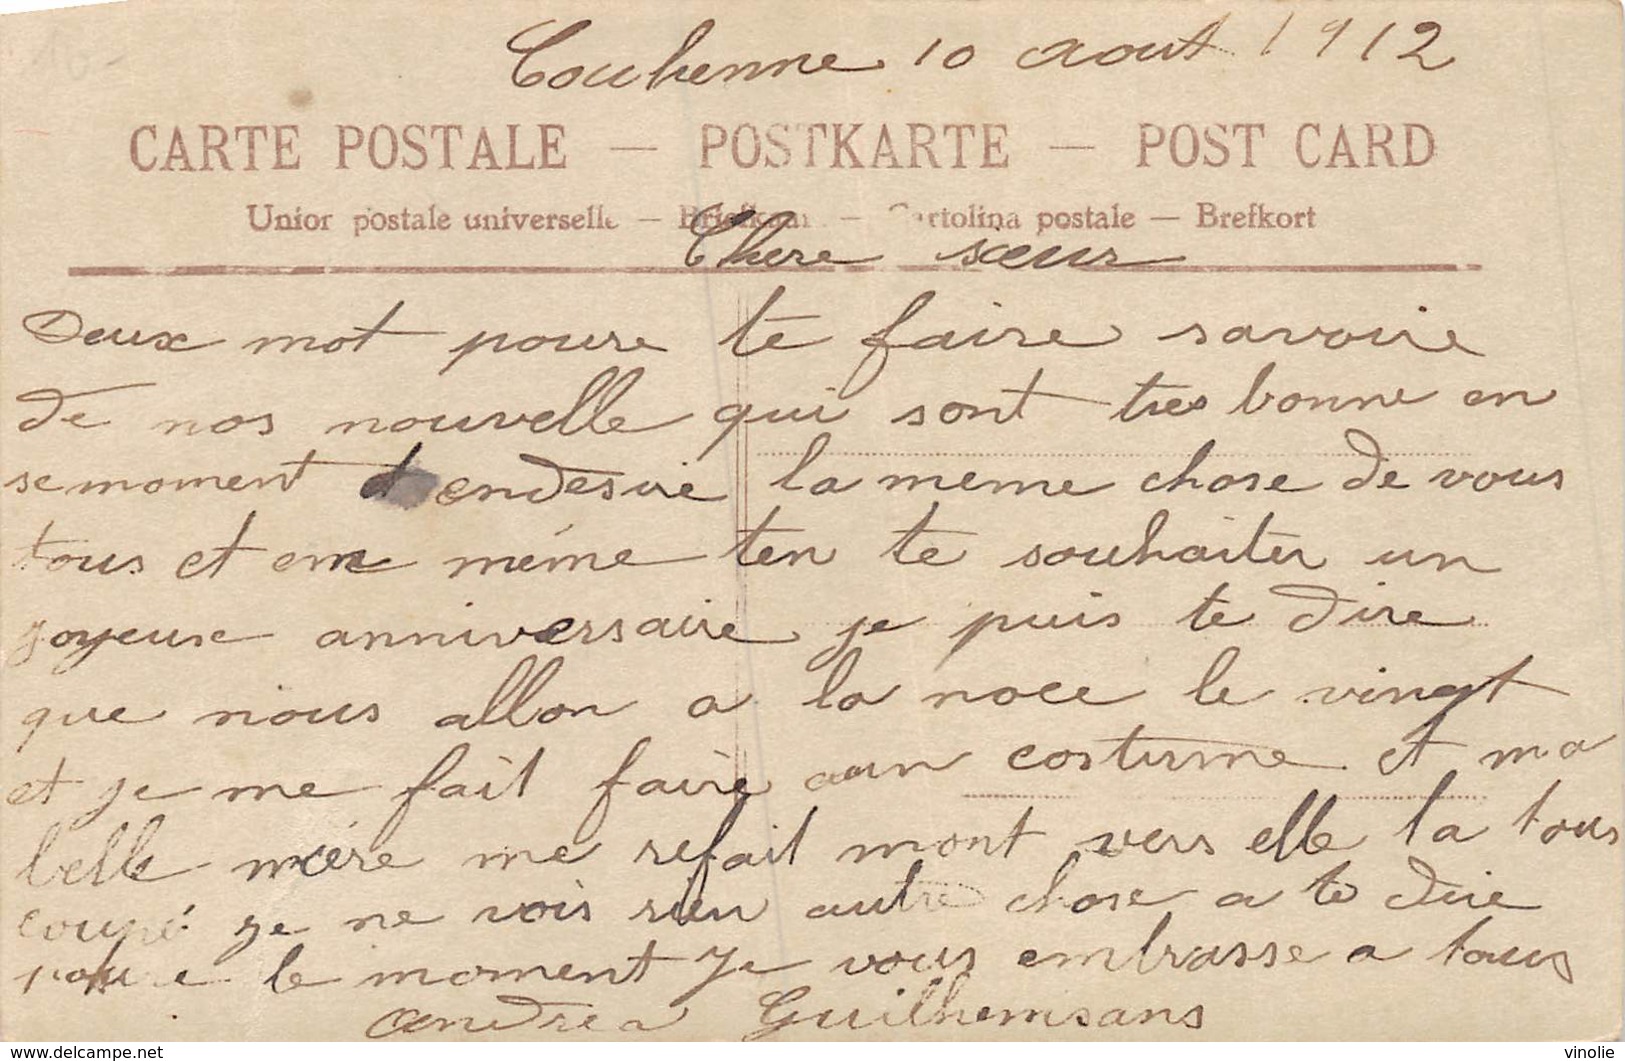 10 aout 1912
CARTE POSTALE — POSTKARTE — POST CARD
Union postale universelle — — Cartolina postale — Brefkort
Chere sœur
Deux mot poure te faire savoire
de nos nouvelle qui sont tres bonne en
se moment endesire la meme chose de vous
tous et em méme ten te souhaiter un
joyeuse anniversaire je puis te dire
que nous allon a la noce le vingt
et je me fait faire un costume et ma
belle mére me refait mont vers elle la tous
coupé je ne vois rien autre chose a te dire
poure le moment Je vous embrasse a tous
Andrea Guilhemsans
https://www.delcampe.net
vinolie